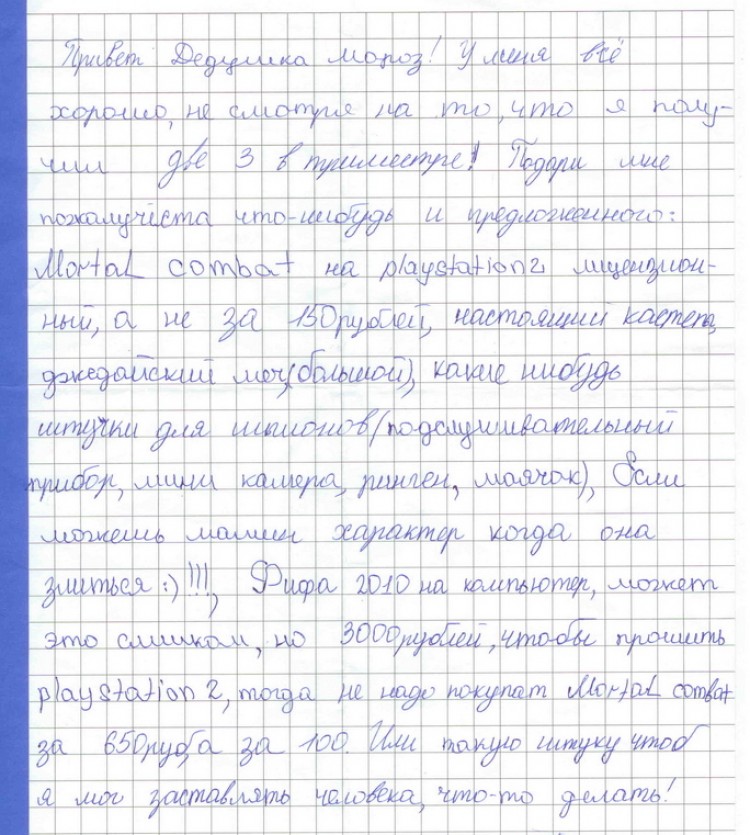 Привет Дедушка мороз! У меня всё
хорошо, не смотря на то, что я полу-
чил две 3 в триместре! Подари мне
пожалучеста что-нибудь и предложенного:
Mortal combat на playstation 2 лицензион-
ный, а не за 150рублей, настоящий кастет,
джедайский меч(большой), какие нибудь
штучки для шпионов(подслушивательный
прибор, мини камера, ринген, маячок), Если
можешь мамин характер когда она
злиться :) !!!, Фифа 2010 на компьютер, может
это слишком, но 3000рублей, чтобы прошить
playstation 2, тогда не надо покупат Mortal combat
за 650руб,а за 100. Или такую штуку чтоб
я мог заставлять человека, что-то делать!